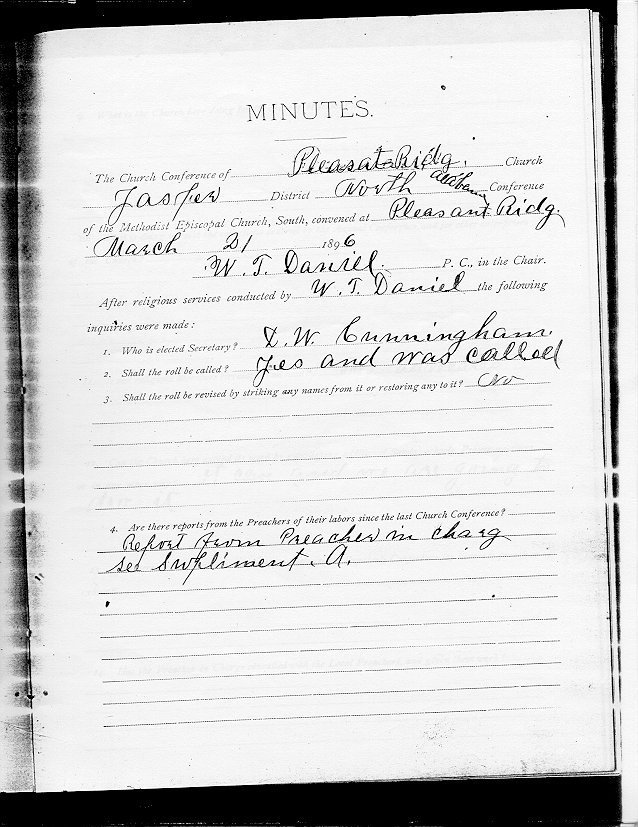 MINUTES.
The Church Conference of Pleasat Ridg. Church
Jasper District North Alabama Conference
of the Methodist Episcopal Church, South, convened at Pleasant Ridg.
March 21 1896
W. T. Daniel. P. C., in the Chair.
After religious services conducted by W. T. Daniel the following
inquiries were made:
1. Who is elected Secretary? W. Cunningham.
2. Shall the roll be called? Yes and was called
3. Shall the roll be revised by striking any names from it or restoring any to it? No
4. Are there reports from the Preachers of their labors since the last Church Conference?
Report from Preacher in charg
see Supliment. A.